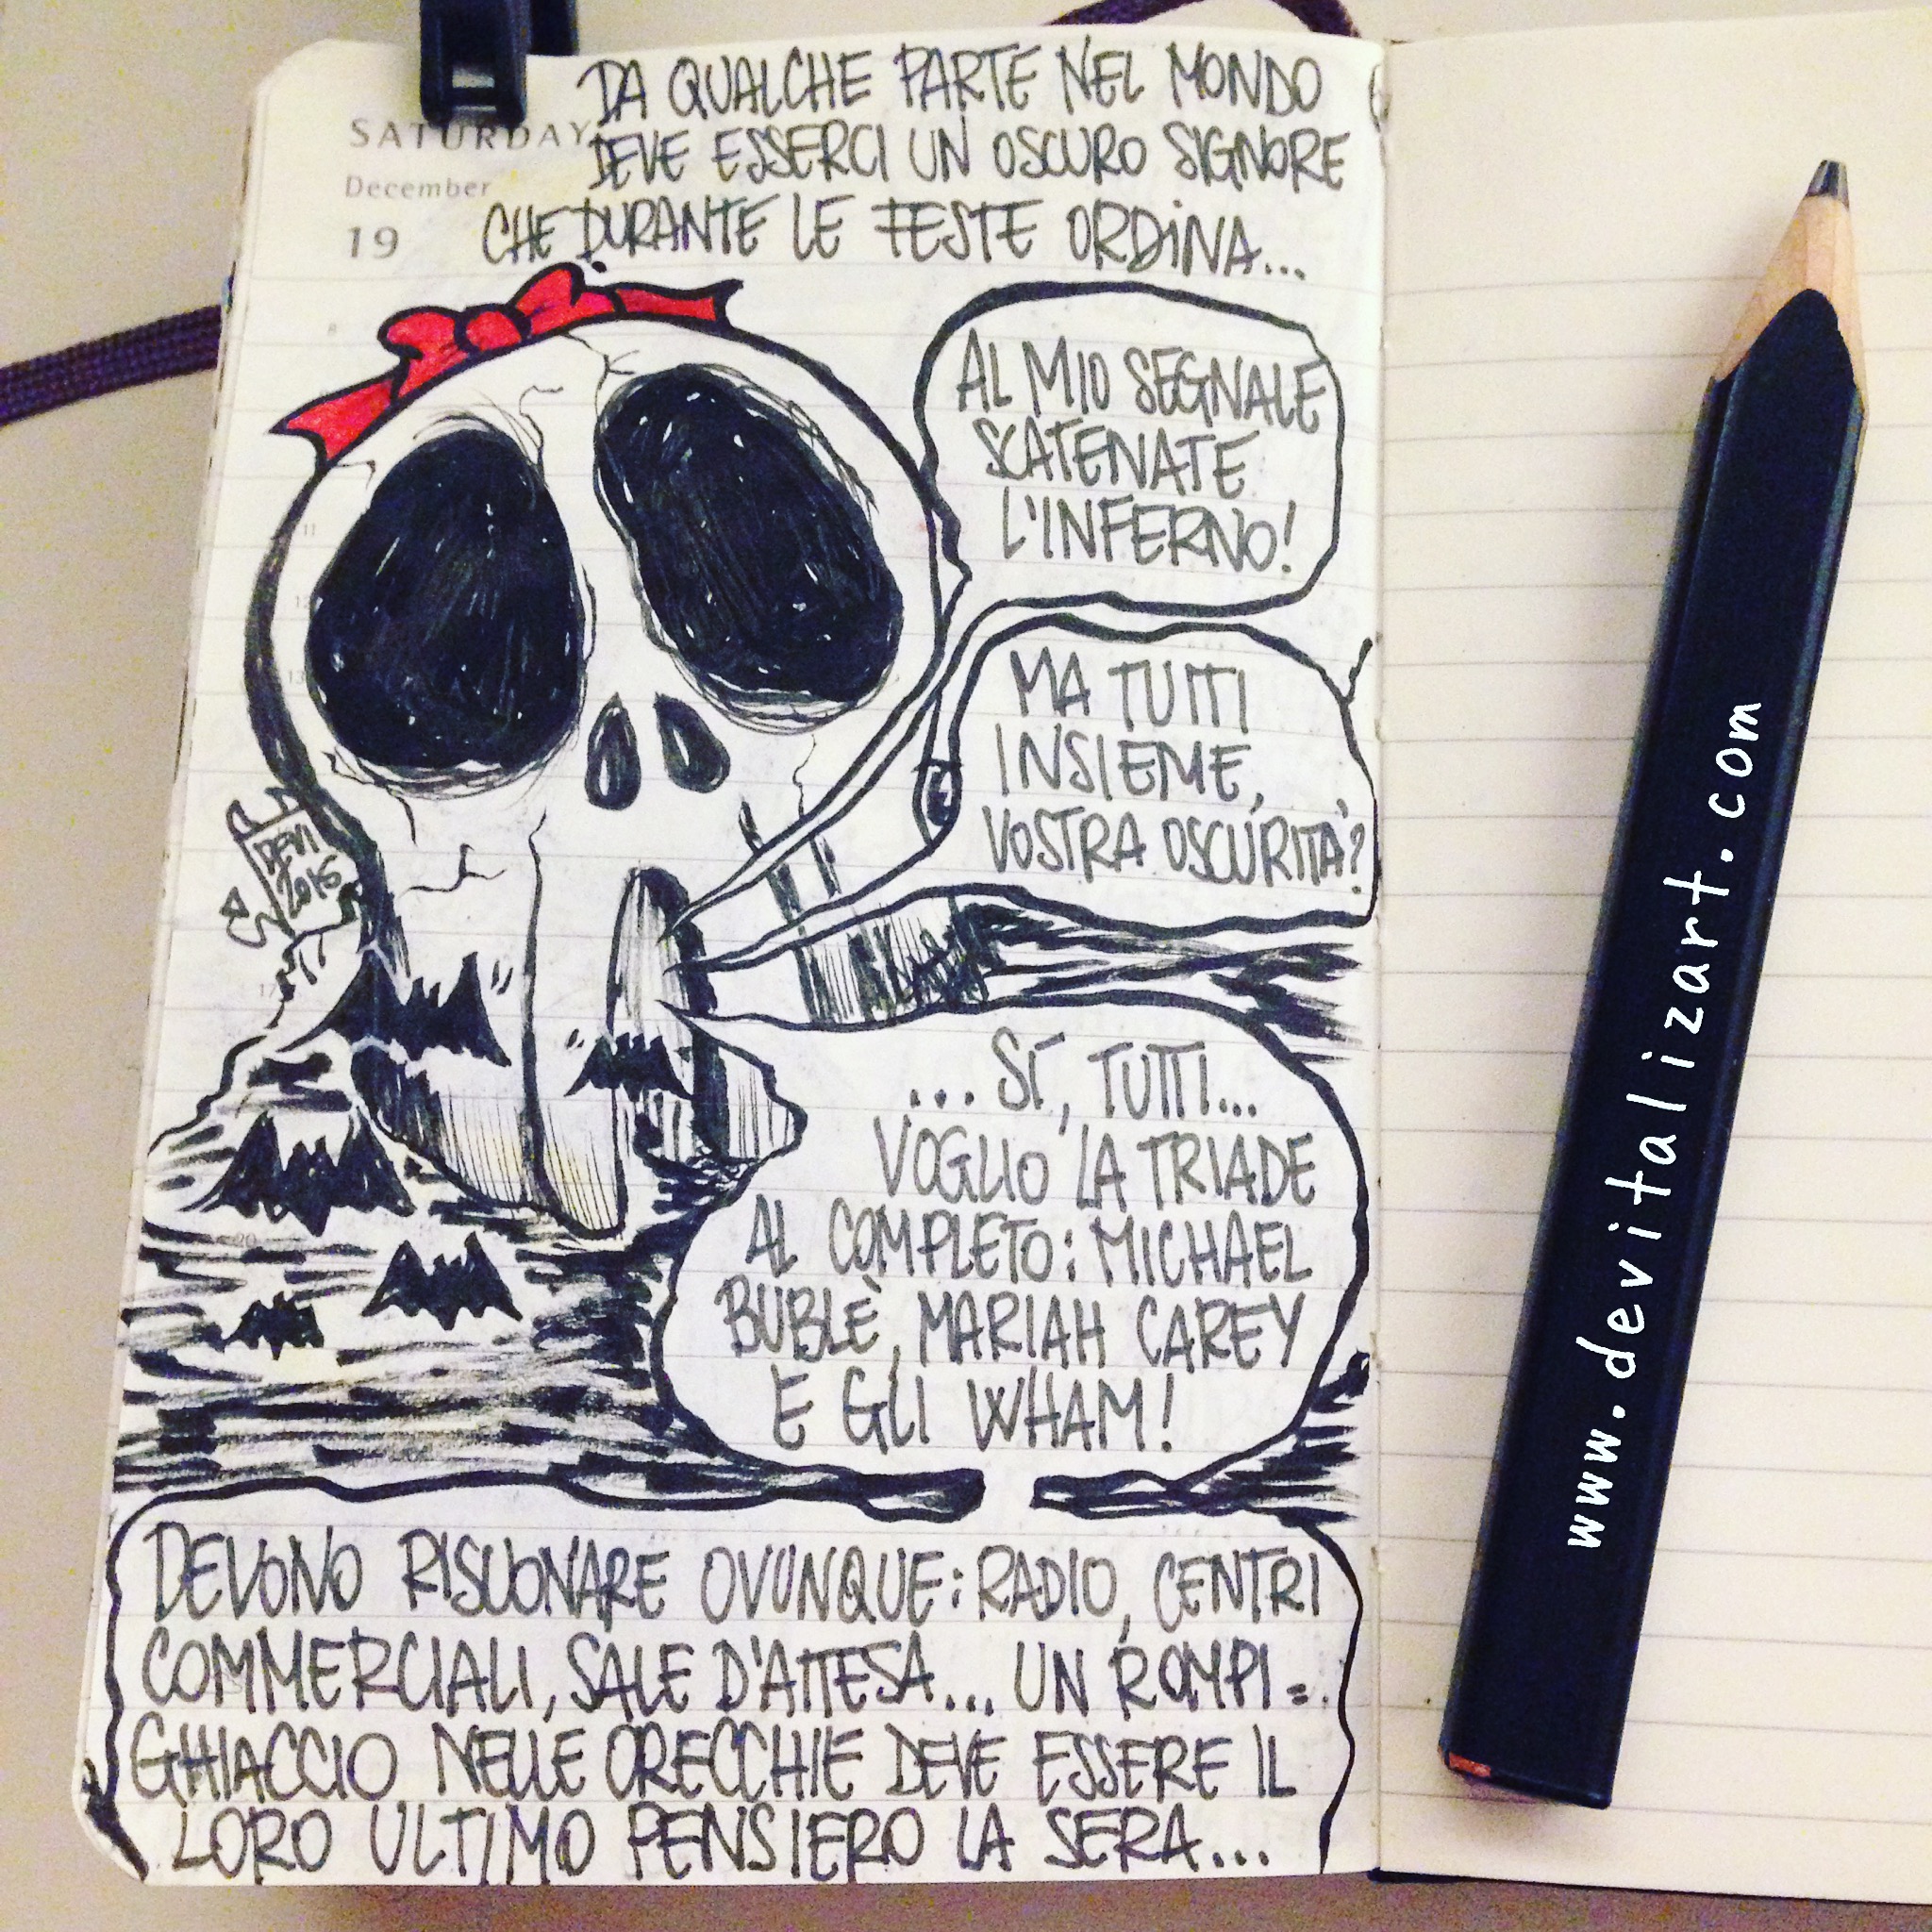 SATURDAY
December
19
DA QUALCHE PARTE NEL MONDO
DEVE ESSERCI UN OSCURO SIGNORE
CHE DURANTE LE FESTE ORDINA...
AL MIO SEGNALE
SCATENATE
L'INFERNO!
MA TUTTI
INSIEME,
VOSTRA OSCURITÀ?
... SÌ, TUTTI...
VOGLIO LA TRIADE
AL COMPLETO: MICHAEL
BUBLÈ, MARIAH CAREY
E GLI WHAM!
DEVONO RISUONARE OVUNQUE: RADIO, CENTRI
COMMERCIALI, SALE D'ATTESA... UN ROMPI=
GHIACCIO NELLE ORECCHIE DEVE ESSERE IL
LORO ULTIMO PENSIERO LA SERA...
DEVI
2016
8
11
12
13
20
www.devitalizart.com